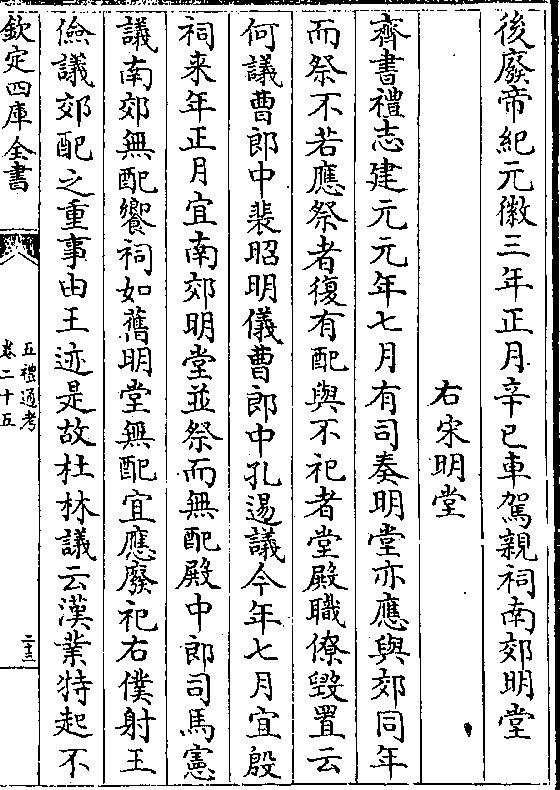 後廢帝紀元徽三年正月辛巳車駕親祠南郊明堂
右宋明堂
齊書禮志建元元年七月有司奏明堂亦應與郊同年
而祭不若應祭者復有配與不祀者堂殿職僚毀置云
何議曹郎中裴昭明儀曹郎中孔逷議今年七月宜殷
祠来年正月宜南郊明堂並祭而無配殿中郎司馬憲
議南郊無配饗祠如舊明堂無配宜應廢祀右僕射王
儉議郊配之重事由王迹是故杜林議云漢業特起不
欽定四庫全書
五禮通考
卷二十五
二十三